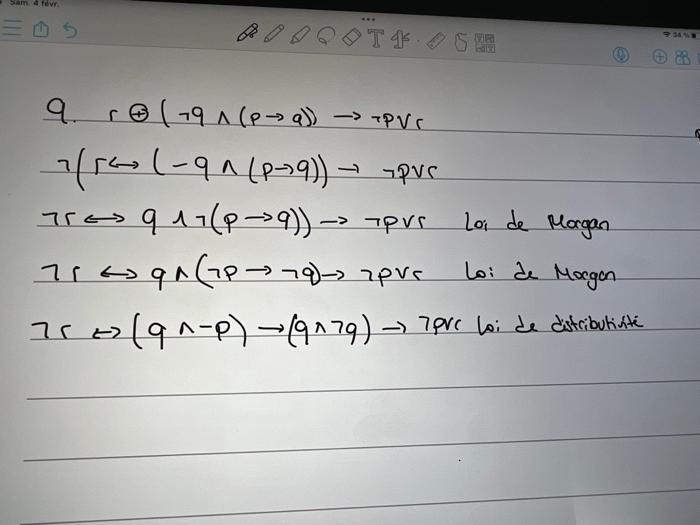 Sam. 4 févr.
34 %
9. r ⊕ (¬q ∧ (p → q)) → ¬p∨r
¬(r ↔ (-q ∧ (p→q)) → ¬p∨r
¬r ↔ q ∧ ¬(p → q)) → ¬p∨r Loi de Morgan
¬r ↔ q ∧ (¬p → ¬q) → ¬p∨r Loi de Morgan
¬r ↔ (q ∧ -p) → (q ∧ ¬q) → ¬p∨r Loi de distributivité